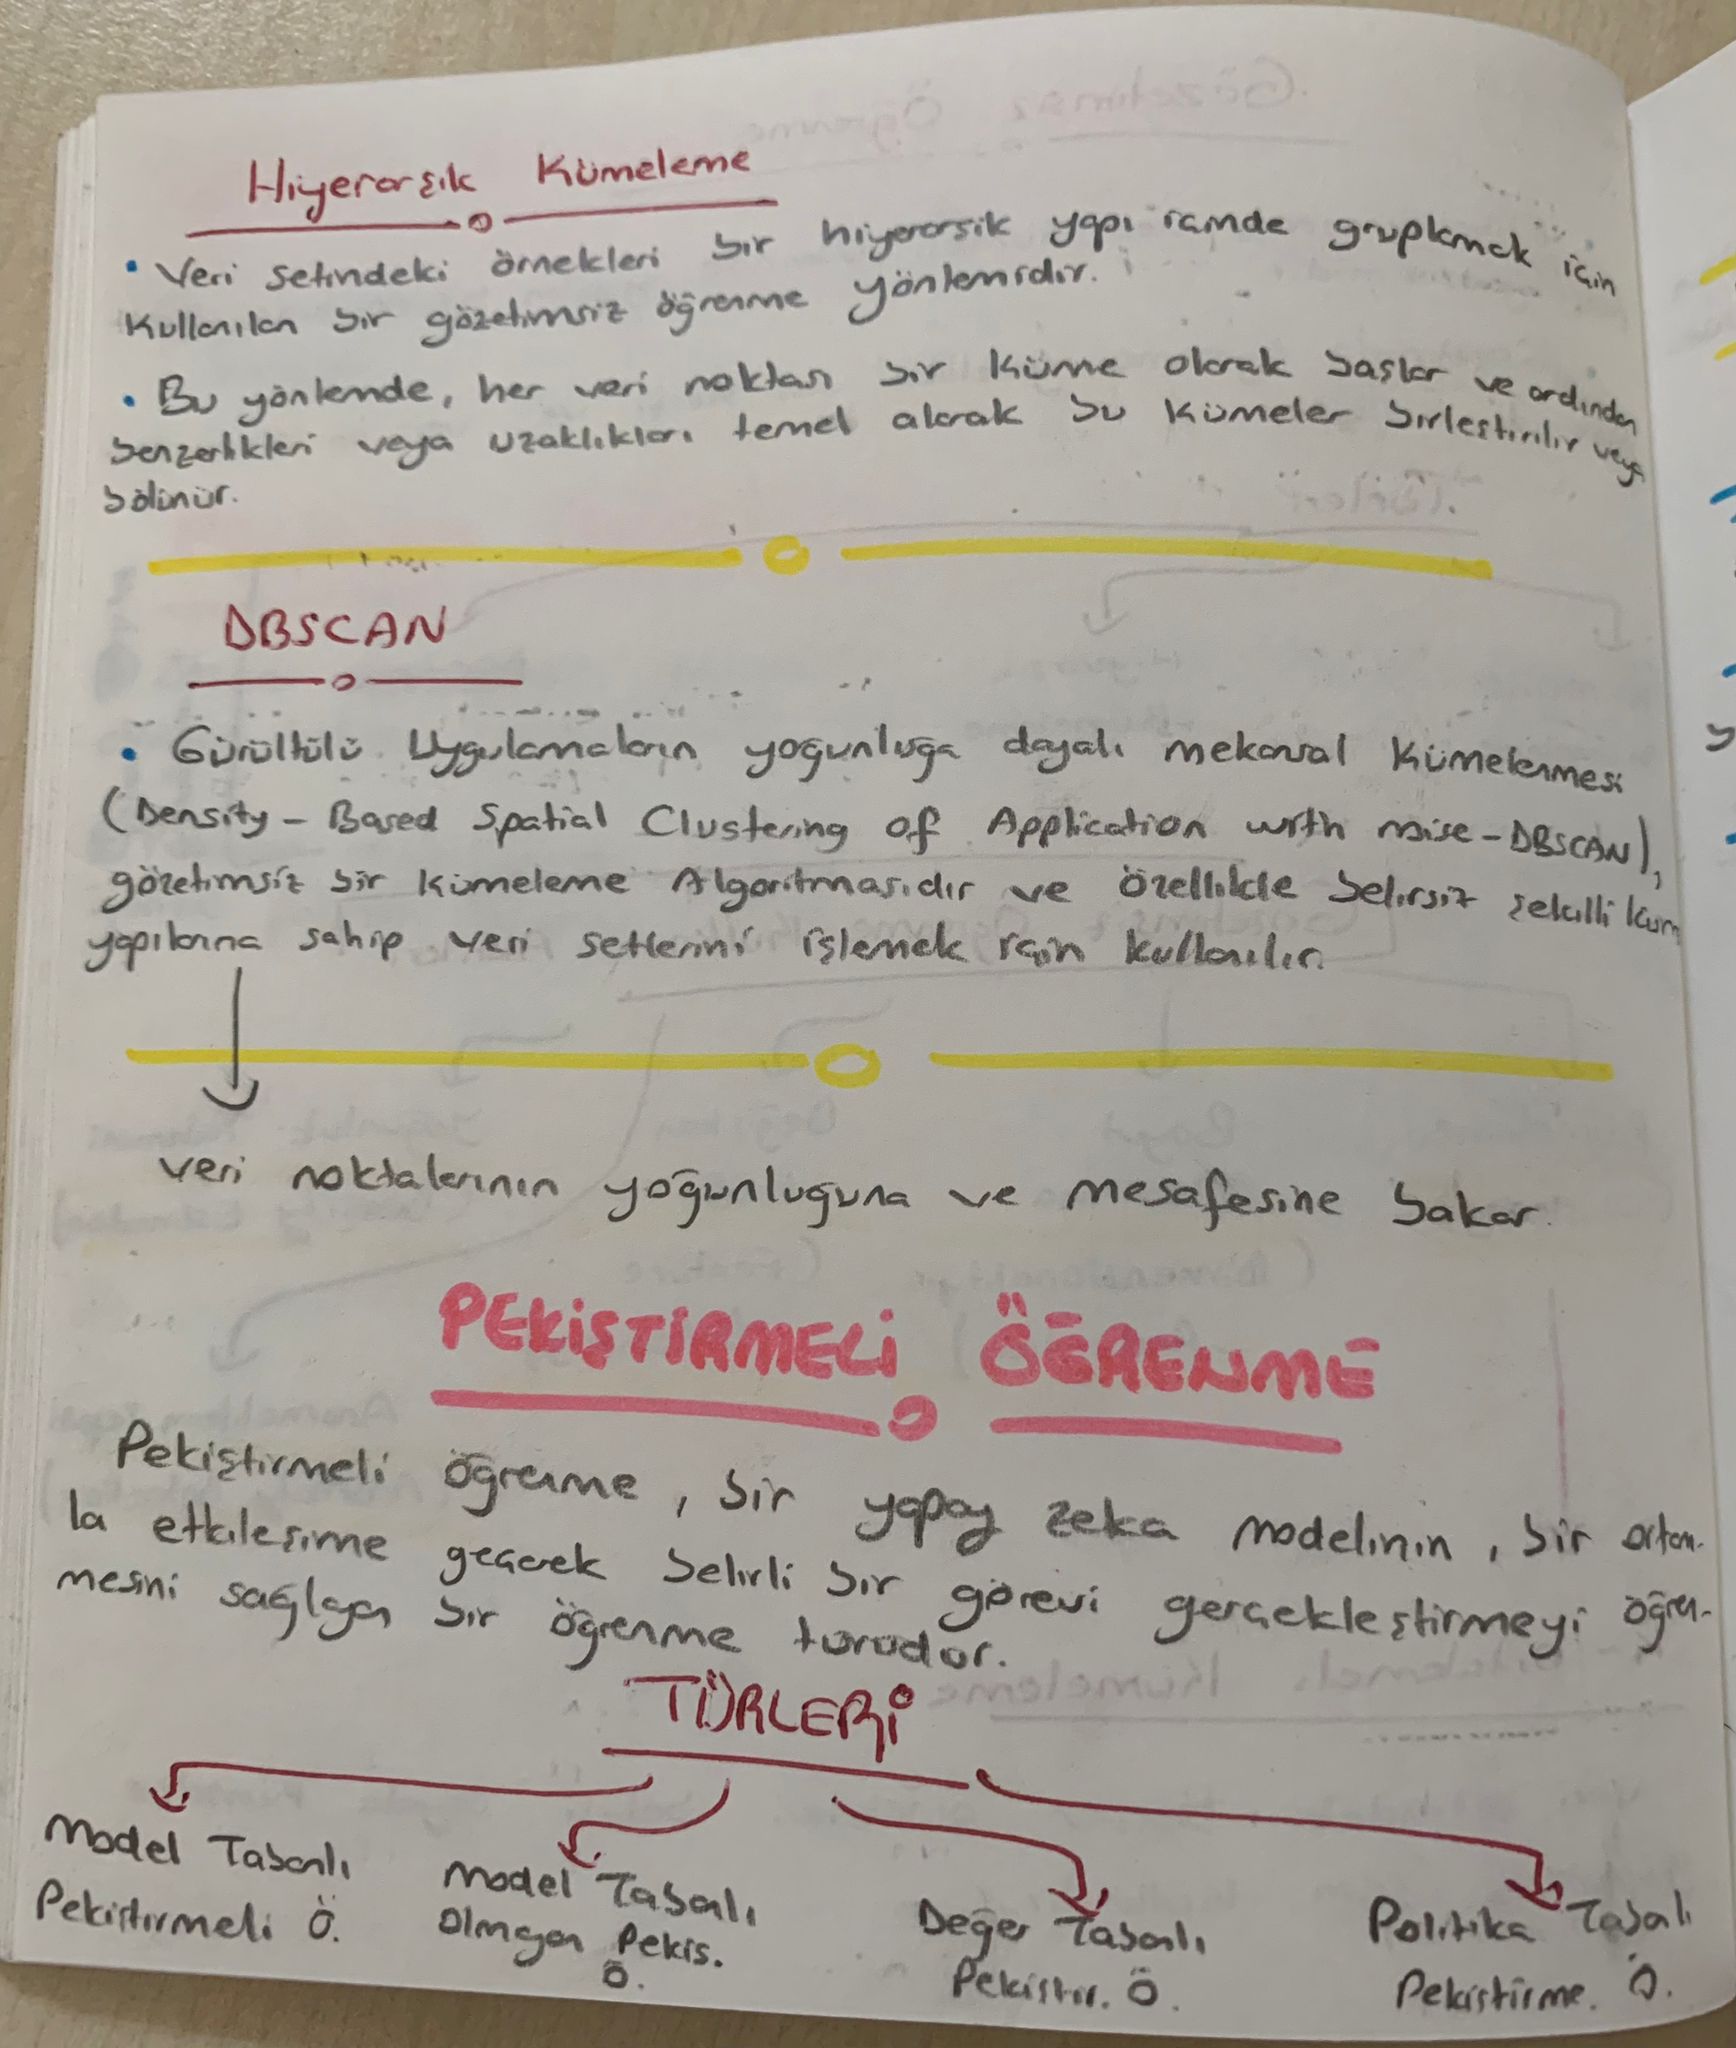 Hiyerarşik Kümeleme
• Veri setindeki örnekleri bir hiyerarşik yapı içinde gruplamak için
kullanılan bir gözetimsiz öğrenme yöntemidir.
• Bu yöntemde, her veri noktası bir küme olarak başlar ve ardından
benzerlikleri veya uzaklıkları temel alarak bu kümeler birleştirilir veya
bölünür.
DBSCAN
• Gürültülü Uygulamaların yoğunluğa dayalı mekansal kümelenmesi
(Density-Based Spatial Clustering of Application with noise-DBSCAN),
gözetimsiz bir kümeleme Algoritmasıdır ve özellikle belirsiz şekilli küm
yapılarına sahip veri setlerini işlemek için kullanılır.
veri noktalarının yoğunluğuna ve mesafesine bakar.
PEKİŞTİRMELİ ÖĞRENME
Pekiştirmeli öğrenme, bir yapay zeka modelinin, bir ortam-
la etkileşime geçerek belirli bir görevi gerçekleştirmeyi öğren-
mesini sağlayan bir öğrenme türüdür.
TÜRLERİ
Model Tabanlı
Pekiştirmeli Ö.
Model Tabanlı
Olmayan Pekiş.
Ö.
Değer Tabanlı
Pekiştir. Ö.
Politika Tabalı
Pekiştirme. Ö.